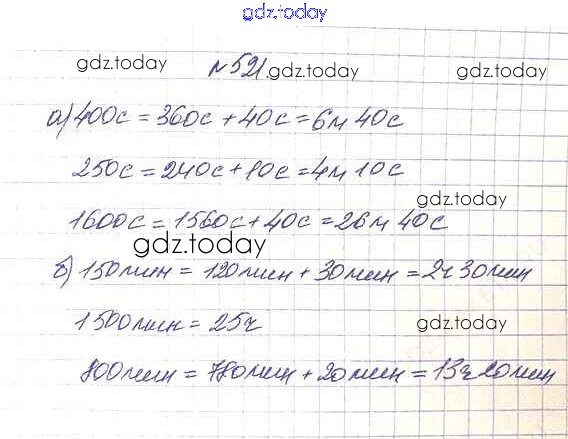 gdz.today
gdz.today №521. gdz.today gdz.today
а) 400с = 360с + 40с = 6м 40с
250с = 240с + 10с = 4м 10с
gdz.today
1600с = 1560с + 40с = 26м 40с
gdz.today
б) 150мин = 120мин + 30мин = 2ч 30мин
1500мин = 25ч
gdz.today
800мин = 780мин + 20мин = 13ч 20мин